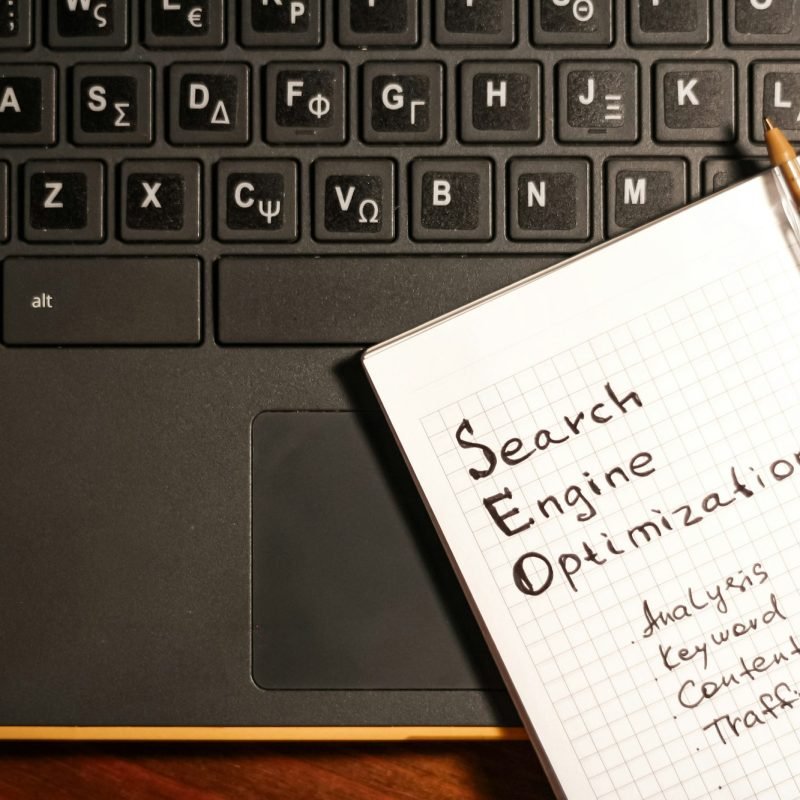 W ς E € R P
A S Σ D Δ F Φ G Γ H J Ξ K L
Z X C Ψ V Ω B N M
alt
Search
Engine
Optimization
Analysis
Keyword
Content